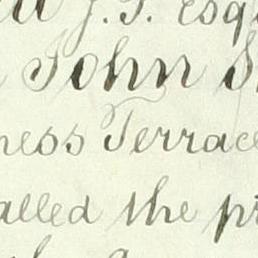 J. T. Esq
John S
ness Terrace
alled the pr